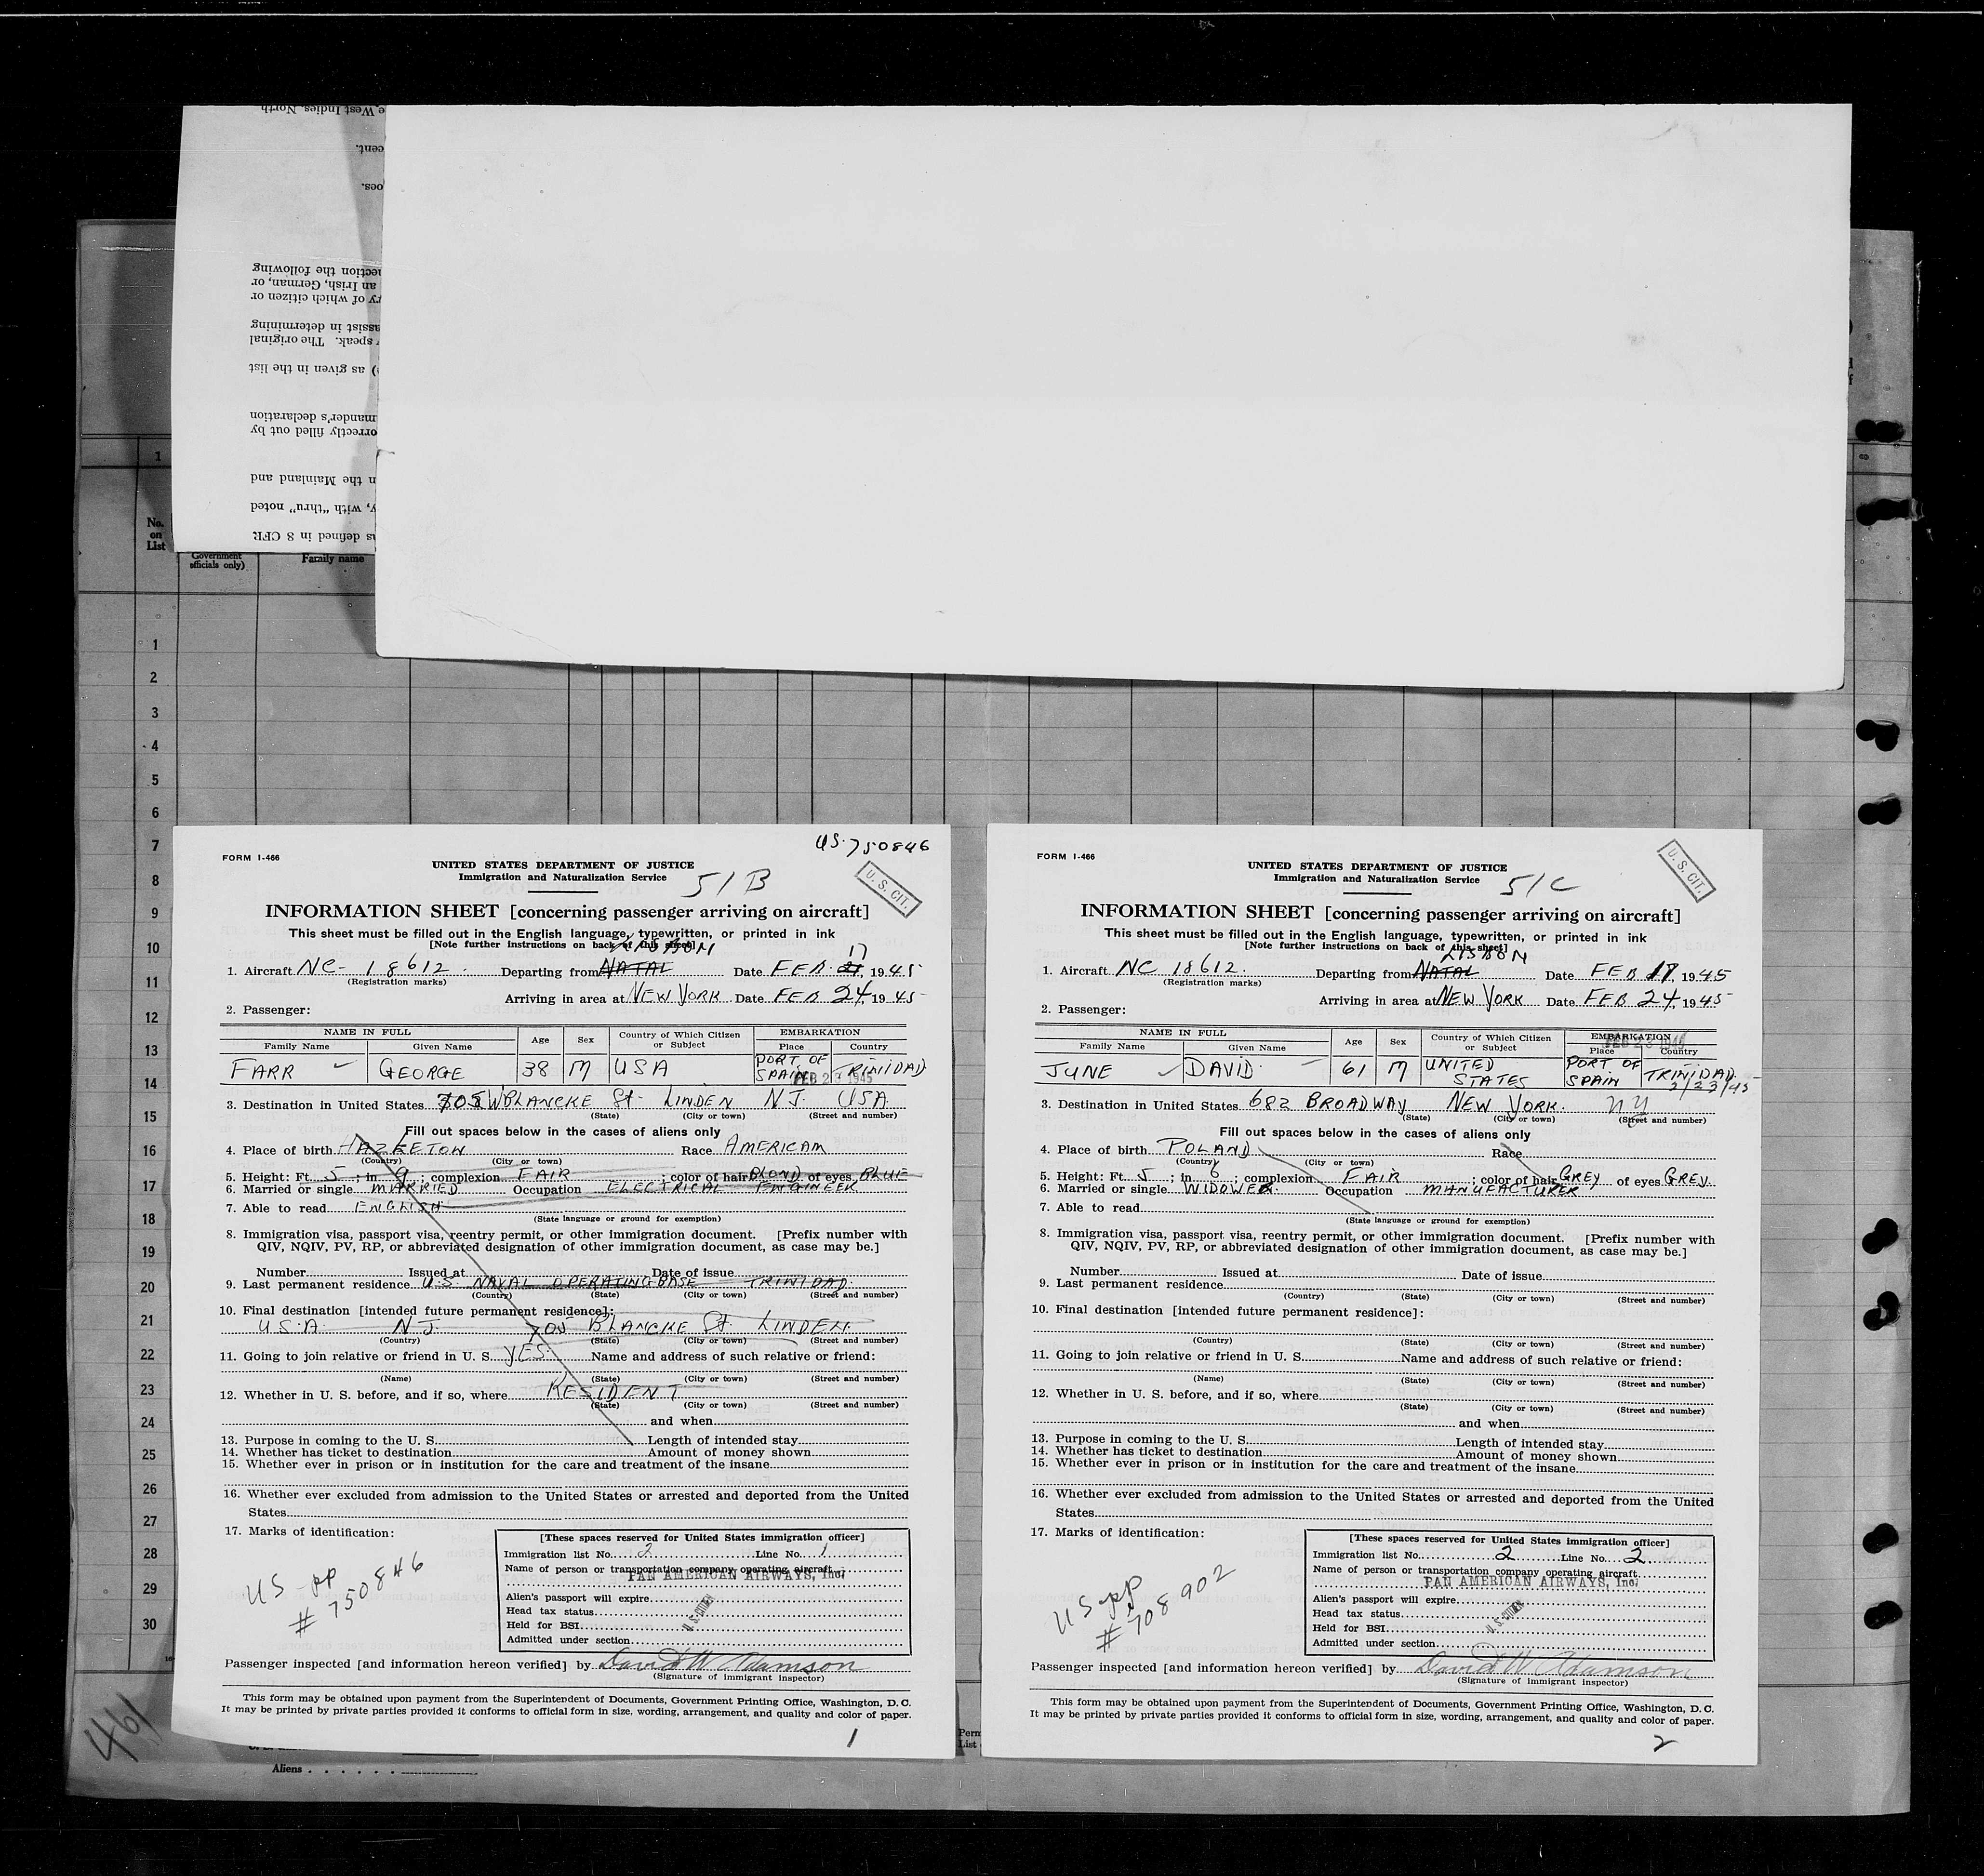 e, West Indies, North
cent.
oes.
nection the following
an Irish, German, or
ry of which citizen or
assist in determining
speak. The original
) as given in the list
mander's declaration
orrectly filled out by
n the Mainland and
y, with "thru" noted
as defined in 8 CFR
1
No.
on
List
Government
officials only)
Family name
1
2
3
4
5
6
7
8
9
10
11
12
13
14
15
16
17
18
19
20
21
22
23
24
25
26
27
28
29
30
461
Aliens
Perm
List
US.750846
FORM I-466
UNITED STATES DEPARTMENT OF JUSTICE
Immigration and Naturalization Service
51B
U. S. CIT.
INFORMATION SHEET [concerning passenger arriving on aircraft]
This sheet must be filled out in the English language, typewritten, or printed in ink
[Note further instructions on back of this sheet]
LISBON
17
1. Aircraft NC-18612. Departing from NATAL Date FEB. 21, 1945
(Registration marks)
Arriving in area at NEW YORK Date FEB 24, 1945
2. Passenger:
NAME IN FULL Age Sex Country of Which Citizen or Subject EMBARKATION
Family Name Given Name Place Country
FARR GEORGE 38 M USA PORT OF SPAIN TRINIDAD
3. Destination in United States 705 W BLANCKE St. LINDEN N.J. USA
(State) (City or town) (Street and number)
Fill out spaces below in the cases of aliens only
4. Place of birth HAZLETON Race AMERICAN
(Country) (City or town)
5. Height: Ft. 5; in 9; complexion FAIR; color of hair BLOND of eyes BLUE
6. Married or single MARRIED Occupation ELECTRICAL ENGINEER
7. Able to read ENGLISH
(State language or ground for exemption)
8. Immigration visa, passport visa, reentry permit, or other immigration document. [Prefix number with
QIV, NQIV, PV, RP, or abbreviated designation of other immigration document, as case may be.]
Number Issued at Date of issue
9. Last permanent residence U.S NAVAL OPERATING BASE TRINIDAD
(Country) (State) (City or town) (Street and number)
10. Final destination [intended future permanent residence]:
U.S.A. N.J. 705 BLANCKE St. LINDEN.
(Country) (State) (City or town) (Street and number)
11. Going to join relative or friend in U. S. YES. Name and address of such relative or friend:
(Name) (State) (City or town) (Street and number)
12. Whether in U. S. before, and if so, where RESIDENT
(State) (City or town) (Street and number)
and when
13. Purpose in coming to the U. S. Length of intended stay
14. Whether has ticket to destination Amount of money shown
15. Whether ever in prison or in institution for the care and treatment of the insane
16. Whether ever excluded from admission to the United States or arrested and deported from the United
States
17. Marks of identification:
US-pp
# 750846
[These spaces reserved for United States immigration officer]
Immigration list No. 2 Line No. 1
Name of person or transportation company operating aircraft
PAN AMERICAN AIRWAYS, Inc.
Alien's passport will expire
Head tax status
U. S. CITIZEN
Held for BSI
Admitted under section
Passenger inspected [and information hereon verified] by David W Adamson
(Signature of immigrant inspector)
This form may be obtained upon payment from the Superintendent of Documents, Government Printing Office, Washington, D. C.
It may be printed by private parties provided it conforms to official form in size, wording, arrangement, and quality and color of paper.
1
FORM I-466
UNITED STATES DEPARTMENT OF JUSTICE
Immigration and Naturalization Service
51C
U. S. CIT.
INFORMATION SHEET [concerning passenger arriving on aircraft]
This sheet must be filled out in the English language, typewritten, or printed in ink
[Note further instructions on back of this sheet]
LISBON
1. Aircraft NC 18612. Departing from NATAL Date FEB 17, 1945
(Registration marks)
Arriving in area at NEW YORK Date FEB 24, 1945
2. Passenger:
NAME IN FULL Age Sex Country of Which Citizen or Subject EMBARKATION
Family Name Given Name Place Country
JUNE DAVID 61 M UNITED STATES PORT OF SPAIN TRINIDAD
2/23/45
3. Destination in United States 682 BROADWAY NEW YORK. NY
(State) (City or town) (Street and number)
Fill out spaces below in the cases of aliens only
4. Place of birth POLAND Race
(Country) (City or town)
5. Height: Ft. 5; in 6; complexion FAIR; color of hair GREY of eyes GREY
6. Married or single WIDOWER. Occupation MANUFACTURER
7. Able to read
(State language or ground for exemption)
8. Immigration visa, passport visa, reentry permit, or other immigration document. [Prefix number with
QIV, NQIV, PV, RP, or abbreviated designation of other immigration document, as case may be.]
Number Issued at Date of issue
9. Last permanent residence
(Country) (State) (City or town) (Street and number)
10. Final destination [intended future permanent residence]:
(Country) (State) (City or town) (Street and number)
11. Going to join relative or friend in U. S. Name and address of such relative or friend:
(Name) (State) (City or town) (Street and number)
12. Whether in U. S. before, and if so, where
(State) (City or town) (Street and number)
and when
13. Purpose in coming to the U. S. Length of intended stay
14. Whether has ticket to destination Amount of money shown
15. Whether ever in prison or in institution for the care and treatment of the insane
16. Whether ever excluded from admission to the United States or arrested and deported from the United
States
17. Marks of identification:
US-pp
# 708902
[These spaces reserved for United States immigration officer]
Immigration list No. 2 Line No. 2
Name of person or transportation company operating aircraft
PAN AMERICAN AIRWAYS, Inc.
Alien's passport will expire
Head tax status
U. S. CITIZEN
Held for BSI
Admitted under section
Passenger inspected [and information hereon verified] by David W Adamson
(Signature of immigrant inspector)
This form may be obtained upon payment from the Superintendent of Documents, Government Printing Office, Washington, D. C.
It may be printed by private parties provided it conforms to official form in size, wording, arrangement, and quality and color of paper.
2